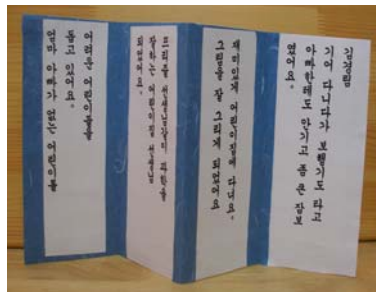 김경림
기어 다니다가 보행기도 타고
아빠한테도 안기고 좀 큰 잠보
였어요.
재미있게 어린이집에 다니고,
그림을 잘 그리게 되었어요
잘하는 어린이집 선생님
되었어요.
어려운 어린이들을
돕고 있어요.
엄마 아빠가 없는 어린이들